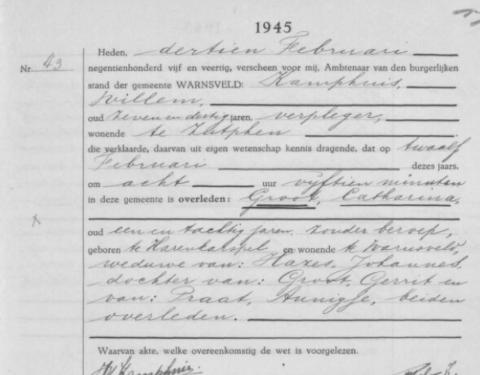 1945
Heden, dertien Februari
Nr. 43
negentienhonderd vijf en veertig, verscheen voor mij, Ambtenaar van den burgerlijken
stand der gemeente WARNSVELD: Kamphuis,
Willem,
oud zeven en dertig jaren, verpleger,
wonende te Zutphen
die verklaarde, daarvan uit eigen wetenschap kennis dragende, dat op twaalf
Februari dezes jaars,
om acht uur vijftien minuten
in deze gemeente is overleden: Groot, Catharina,
oud een en tachtig jaren, zonder beroep,
geboren te Harenkarspel en wonende te Warnsveld,
weduwe van: Hazes, Johannes,
dochter van: Groot, Gerrit en
van: Praat, beiden
overleden.
Waarvan akte, welke overeenkomstig de wet is voorgelezen.
Kamphuis.